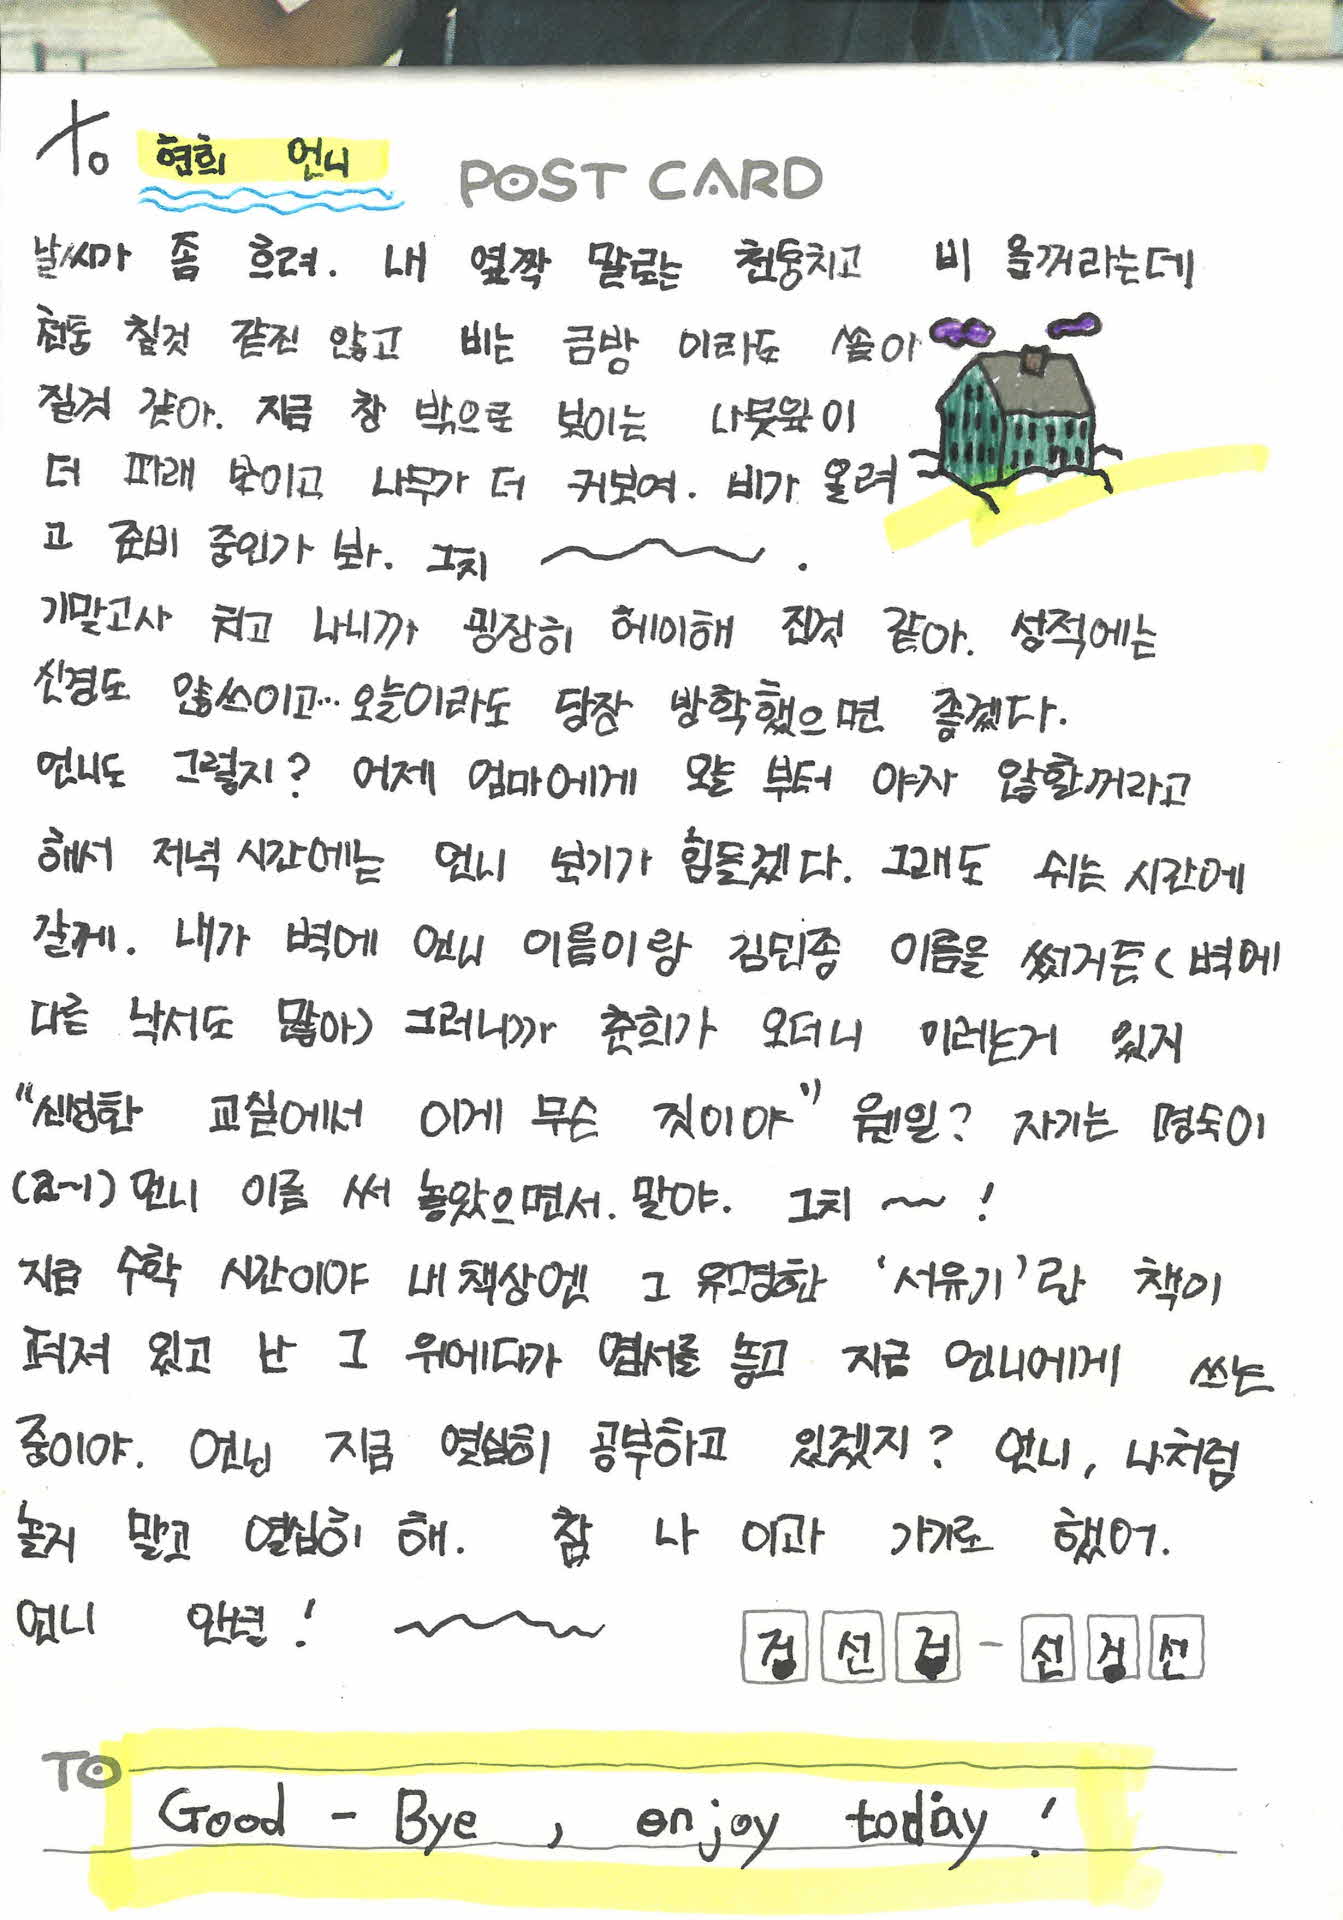 To 현희 언니
POST CARD
날씨가 좀 흐려. 내 옆짝 말로는 천둥치고 비 올꺼라는데
천둥 칠것 같진 않고 비는 금방 이라도 쏟아
질것 같아. 지금 창 밖으로 보이는 나뭇잎이
더 파래 보이고 나무가 더 커보여. 비가 올려
고 준비 중인가 봐. 그치 ~.
기말고사 치고 나니까 굉장히 헤이해 진것 같아. 성적에는
신경도 않쓰이고… 오늘이라도 당장 방학했으면 좋겠다.
언니도 그렇지? 어제 엄마에게 오늘 부터 야자 않할꺼라고
해서 저녁 시간에는 언니 보기가 힘들겠다. 그래도 쉬는 시간에
갈게. 내가 벽에 언니 이름이랑 김민종 이름을 썼거든 (벽에
다른 낙서도 많아) 그러니까 춘희가 오더니 이러는거 있지
"신성한 교실에서 이게 무슨 짓이야" 웬일? 자기는 명숙이
(2~1) 언니 이름 써 놓았으면서. 말야. 그치 ~!
지금 수학 시간이야 내 책상엔 그 유명한 '서유기'란 책이
펴져 있고 난 그 위에다가 엽서를 놓고 지금 언니에게 쓰는
중이야. 언닌 지금 열심히 공부하고 있겠지? 언니, 나처럼
놀지 말고 열심히 해. 참 나 이과 가기로 했어.
언니 안녕! ~
정 선 겁 - 선 경 선
TO
Good - Bye, enjoy today!